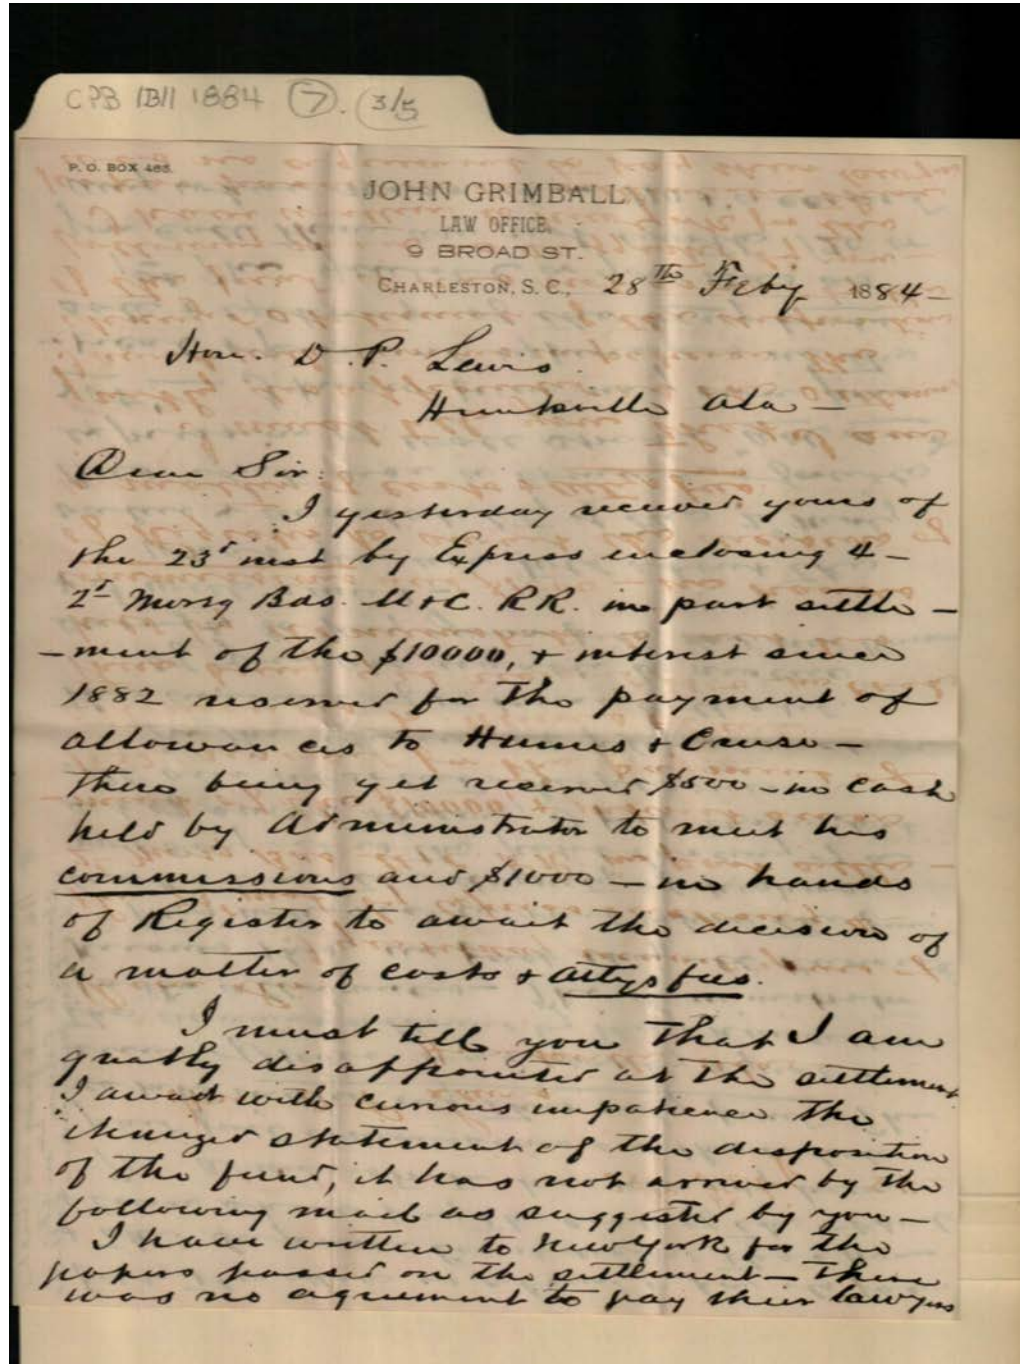 CPB IBII 1884 7. 3/5
P. O. BOX 465.
JOHN GRIMBALL
LAW OFFICE,
9 BROAD ST.
CHARLESTON, S. C., 28th Feby 1884-
Hon. D. P. Lewis
Huntsville Ala -
Dear Sir:
I yesterday received yours of
the 23d inst by Express enclosing 4-
2d Mortg Bds. M & C. R R. in part settle-
-ment of the $10000, & interest since
1882 reserved for the payment of
allowances to Humes & Cruse -
there being yet reserved $500 - in cash
held by Administrator to meet his
commissions and $1000 - in hands
of Register to await the decision of
a matter of costs & attys fees.
I must tell you that I am
greatly disappointed at the settlement
I await with curious impatience the
changed statement of the disposition
of the fund, it has not arrived by the
following mail as suggested by you -
I have written to New York for the
papers passed on the settlement - There
was no agreement to pay their lawyers